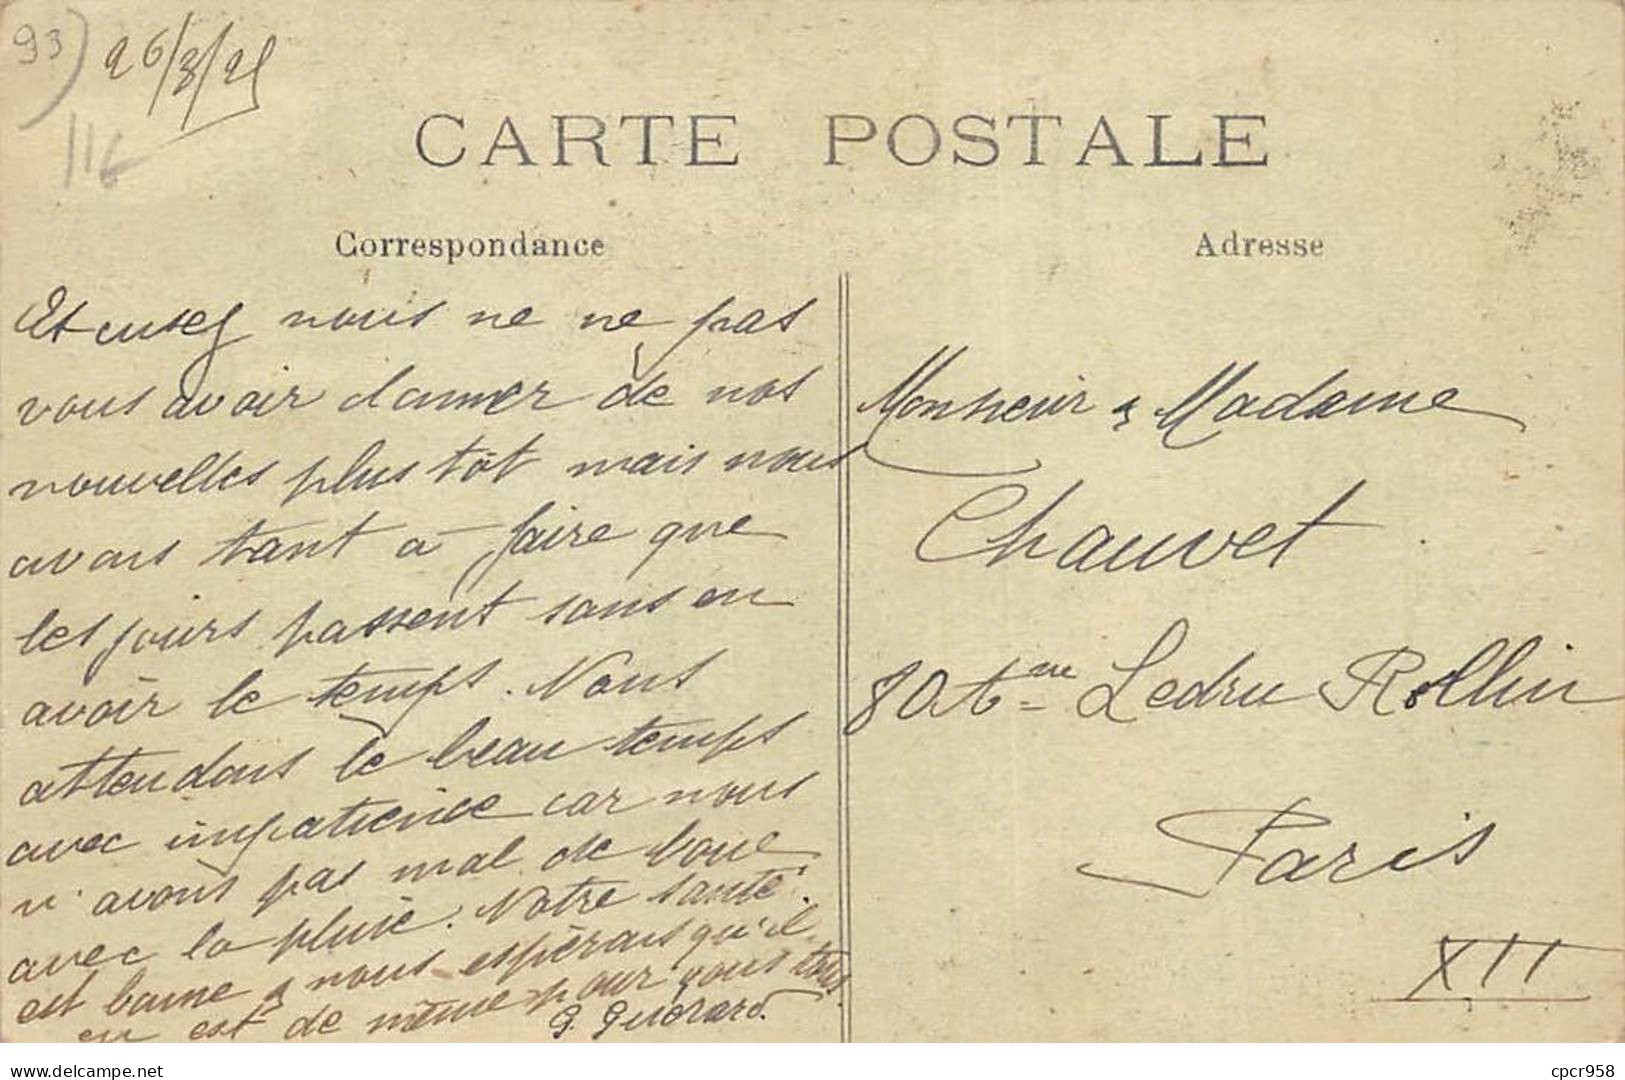 93)
26/3/25
116
CARTE POSTALE
Correspondance
Adresse
nous ne ne pas
vous avoir donner de nos
nouvelles plus tôt mais nous
avons tant à faire que
les jours passent sans en
avoir le temps. Nous
attendons le beau temps
avec impatience car nous
n'avons pas mal de boue
avec la pluie. Notre santé
est bonne & nous espérons qu'il
en est de même pour vous tous
G. Guérard.
Monsieur & Madame
Chauvet
80 Ledru Rollin
Paris
XII
delcampe.net
cpcr958